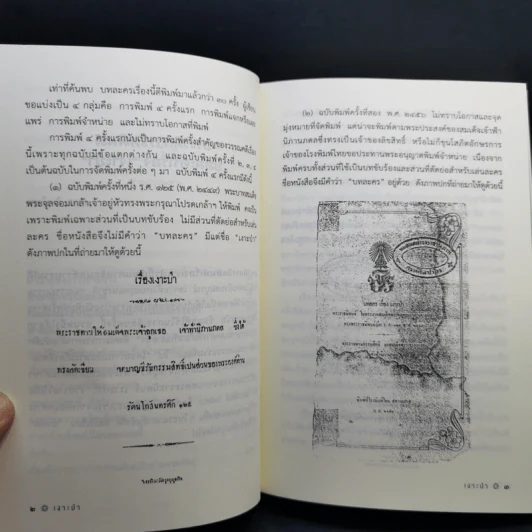 เท่าที่ค้นพบ บทละครเรื่องนี้ตีพิมพ์มาแล้วกว่า ๓๐ ครั้ง
ขอแบ่งเป็น ๔ กลุ่มคือ การพิมพ์ ๔ ครั้งแรก การพิมพ์แจกหรือเผย
แพร่ การพิมพ์จำหน่าย และไม่ทราบโอกาสที่พิมพ์
การพิมพ์ ๔ ครั้งแรกนับเป็นการพิมพ์ครั้งสำคัญของวรรณคดีเรื่อง
นี้เพราะทุกฉบับมีข้อแตกต่างกัน และฉบับพิมพ์ครั้งที่ ๒, ๓, ๔
เป็นต้นฉบับในการจัดพิมพ์ครั้งต่อ ๆ มา ฉบับพิมพ์ ๔ ครั้งแรกมีดังนี้
(๑) ฉบับพิมพ์ครั้งที่หนึ่ง ร.ศ. ๑๒๕ (พ.ศ. ๒๔๔๙) พระบาทสมเด็จ
พระจุลจอมเกล้าเจ้าอยู่หัวทรงพระกรุณาโปรดเกล้าฯ ให้พิมพ์
เพราะพิมพ์เฉพาะส่วนที่เป็นบทขับร้อง ไม่มีส่วนที่ตัดต่อสำหรับเล่น
ละคร ชื่อหนังสือจึงไม่มีคำว่า “บทละคร” มีแต่ชื่อ “เงาะป่า”
ดังภาพปกในที่ถ่ายมาให้ดูด้วยนี้
เรื่องเงาะป่า
พระราชทานให้สมเด็จพระเจ้าลูกเธอ เจ้าฟ้านิภานภดล ซึ่งได้
ทรงคัดเขียน จดบาญชีรับกรรมสิทธิ์เปนส่วนของพระองค์ท่าน
รัตนโกสินทรศก ๑๒๕
๒ เงาะป่า
(๒) ฉบับพิมพ์ครั้งที่สอง พ.ศ. ๒๔๕๖ ไม่ทราบโอกาสและจุด
มุ่งหมายที่จัดพิมพ์ แต่น่าจะพิมพ์ตามพระประสงค์ของสมเด็จเจ้าฟ้า
นิภานภดลซึ่งทรงเป็นเจ้าของลิขสิทธิ์ หรือไม่ก็ขุนโสภิตอักษรการ
เจ้าของโรงพิมพ์ไทยขอประทานพระอนุญาตพิมพ์จำหน่าย เนื่องจาก
พิมพ์ครบทั้งส่วนที่ใช้เป็นบทขับร้องและส่วนที่ตัดต่อสำหรับเล่นละคร
ชื่อหนังสือจึงมีคำว่า “บทละคร” อยู่ด้วย ดังภาพปกที่ถ่ายมาให้ดูด้วยนี้
บทละคร เรื่อง เงาะป่า
เงาะป่า ๓